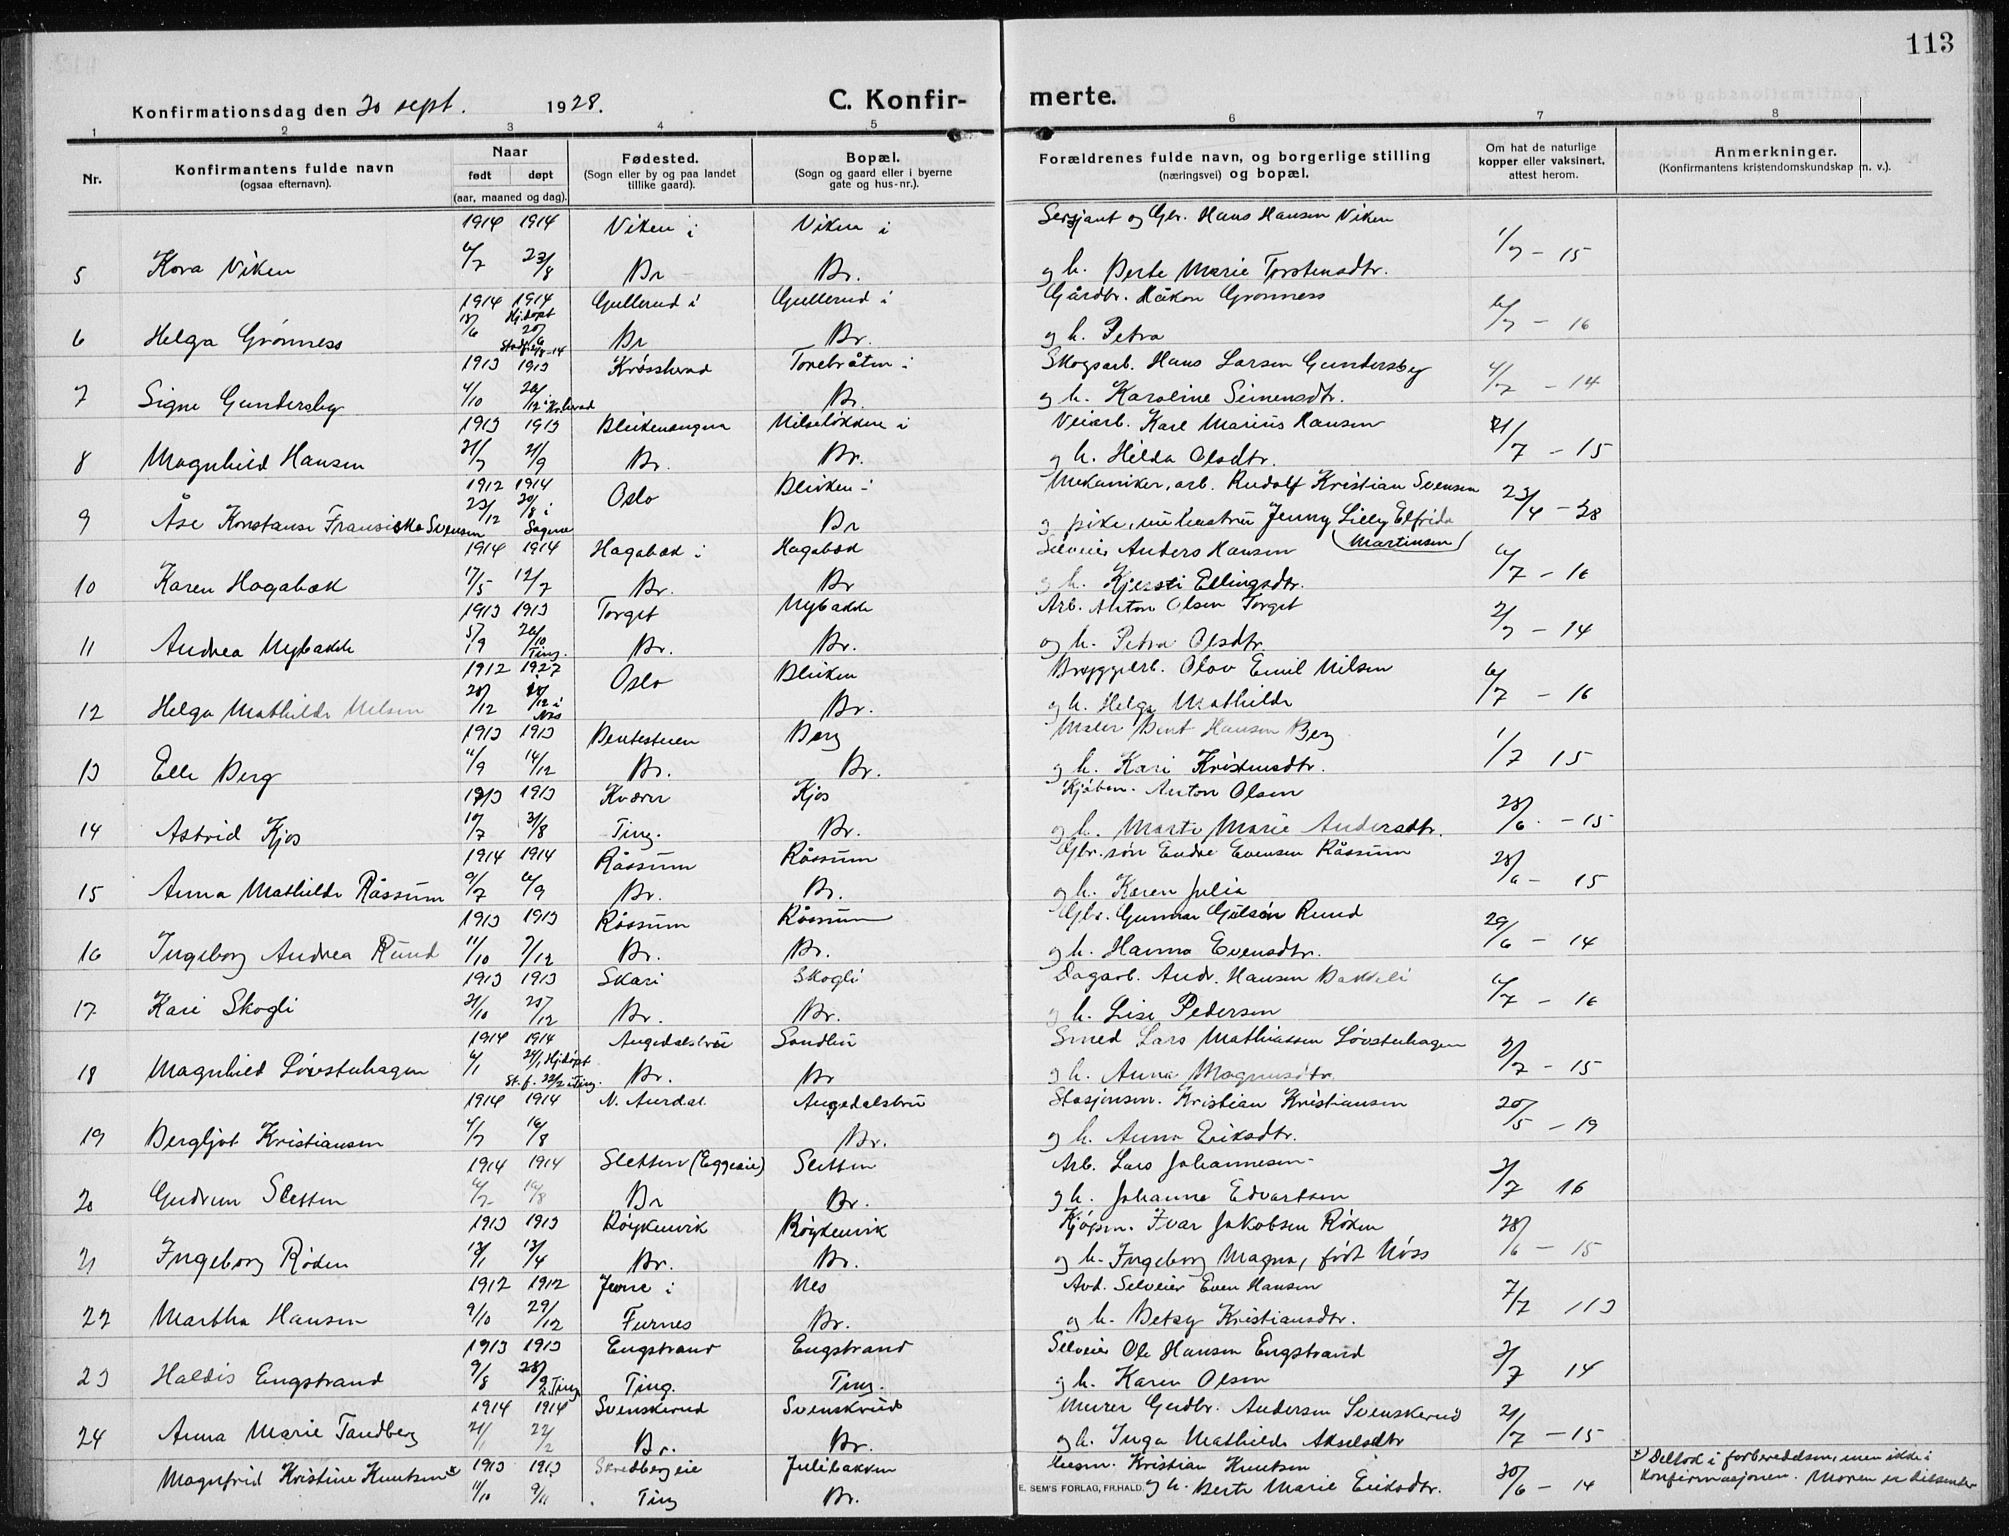 113
Konfirmationsdag den 30 sept. 1928. C. Konfir- merte.
1 2 3 4 5 6 7 8
Nr. Konfirmantens fulde navn (ogsaa efternavn). Naar født døpt (aar, maaned og dag). Fødested. (Sogn eller by og paa landet tillike gaard). Bopæl. (Sogn og gaard eller i byerne gate og hus-nr.). Forældrenes fulde navn, og borgerlige stilling (næringsvei) og bopæl. Om hat de naturlige kopper eller vaksinert, attest herom. Anmerkninger. (Konfirmantens kristendomskundskap m. v.).
1914 1914 Viken i Viken i Sersjant og Gbr. Hans Hansen Viken
5 Kora Viken 6/7 23/8 Br Br. og h. Berte Marie Torstensdtr. 1/7 - 15
1914 1914 Gullerud i Gullerud i Gårdbr. Håkon Grønness
6 Helga Grønness 18/6 Hj.døpt 20/6 Br Br. og h. Petra 6/7 - 16
1913 1913 Krøssherad Torebråten i Skogsarb. Hans Larsen Gundersby
7 Signe Gundersby 4/10 26/12 i Kr.herad Br. og h. Karoline Simensdtr. 4/7 - 14
1913 1913 Blikenangen Nilseløkken i Veiarb. Karl Marius Hansen
8 Magnhild Hansen 31/7 21/9 Br. Br. og h. Hilda Olsdtr. 21/7 - 15
1912 1914 Oslo Bliken i Mekaniker, arb. Rudolf Kristian Svensen
9 Åse Konstanse Fransiska Svensen 23/12 30/8 i Sagene Br og pike, Jenny Lilly Elfrida (Martinsen) 23/4 - 28
1914 1914 Hagabæk i Hagabæk Selveier Anders Hansen
10 Karen Hagabæk 17/5 12/7 Br. Br og h. Kjersti Ellingsdtr. 6/7 - 16
1913 1913 Torget Nybakke Arb. Anton Olsen Torget
11 Andrea Nybakke 5/9 26/10 Ting. Br. Br. og h. Petra Olsdtr. 2/7 - 14
1912 1927 Oslo Bliken Bryggearb. Olav Emil Nilsen
12 Helga Mathilde Nilsen 28/12 18/12 i Nes Br. og h. Helga Mathilde 6/7 - 16
1913 1913 Bentestuen Berg Maler Bent Hansen Berg
13 Elle Berg 11/9 14/12 Br. Br. og h. Kari Kristensdtr. 1/7 15
1913 1913 Kværn Kjos Kjøbm. Anton Olsen
14 Astrid Kjos 10/7 31/8 Ting. Br. og h. Marte Marie Andersdtr. 28/6 - 15
1914 1914 Råssum Råssum Gbr.søn Endre Evensen Råssum
15 Anna Mathilde Råssum 9/7 6/9 Br. Br. og h. Karen Julia 28/6 - 15
1913 1913 Råssum Råssum Gbr. Gunnar Gulsøn Rund
16 Ingeborg Andrea Rund 11/10 7/12 Br. Br. og h. Hanna Evensdtr. 29/6 - 14
1913 1913 Skari Skogli Dagarb. Andr. Hansen Bakkeli
17 Kari Skogli 31/10 28/12 Br. Br. og h. Lise Pedersen 6/7 - 16
1914 1914 Augedalsbru Sandlie Smed Lars Mathiassen Løvstuhagen
18 Magnhild Løvstuhagen 6/1 24/1 Hj.døpt St.f. 22/2 i Ting. Br. Br og h. Anna Magnusdtr. 2/7 - 15
1914 1914 N. Aurdal Augedalsbru Stasjonsm. Kristian Kristiansen
19 Bergljot Kristiansen 4/7 16/8 Br. og h. Anna Eriksdtr. 20/5 - 19
1914 1914 Sletten (Eggeeie) Sletten Arb. Lars Johannesen
20 Gudrun Sletten 6/7 16/8 Br Br. og h. Johanne Edvartsen 3/7 16
1913 1913 Røykenvik Røykenvik Kjøpm. Ivar Jakobsen Røken
21 Ingeborg Røden 12/1 13/4 Br. Br. og h. Ingeborg Magna, født Nøss 28/6 - 15
1912 1912 Jevne i Nes Avd. Selveier Even Hansen
22 Martha Hansen 9/10 29/12 Furnes Br. og h. Betsy Kristiansdtr. 7/7 113
1913 1913 Engstrand Engstrand Selveier Ole Hansen Engstrand
23 Haldis Engstrand 9/8 28/9 i Ting Ting. Ting. og h. Karen Olsen 3/7 14
1914 1914 Svenskerud Svenskrud Murer Gudbr. Andersen Svenskerud
24 Anna Marie Tandberg 21/1 22/2 Br. Br. og h. Inga Mathilde Akselsdtr 21/7 - 15
Magnfrid Kristine Knutsen* 1913 1913 Skredbergeie Julibakken Kristian Knutsen *) Deltok i forberedelsen, men ikke i
11/10 9/11 Ting Br. og h. Berte Marie Eriksdtr. 30/6 - 14 Konfirmasjonen. Moren er dissenter
E. SEM'S FORLAG, FR.HALD.